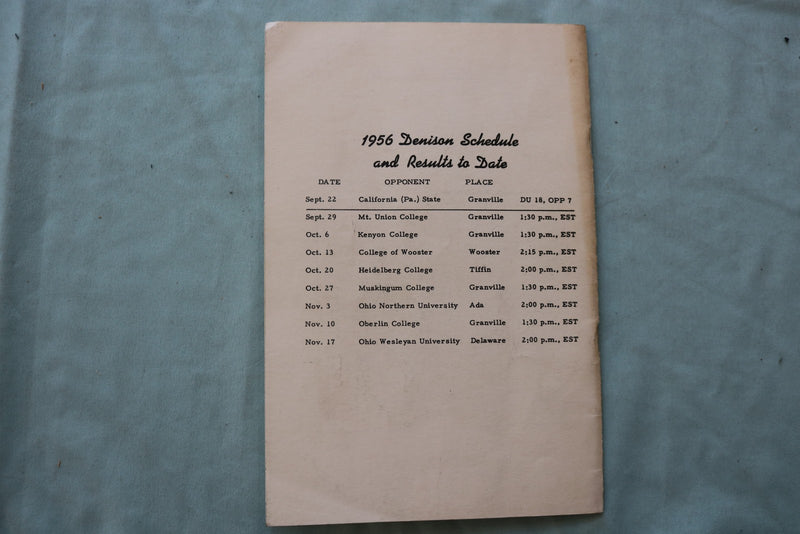 1956 Denison Schedule
and Results to Date
DATE OPPONENT PLACE
Sept. 22 California (Pa.) State Granville DU 18, OPP 7
Sept. 29 Mt. Union College Granville 1:30 p.m., EST
Oct. 6 Kenyon College Granville 1:30 p.m., EST
Oct. 13 College of Wooster Wooster 2:15 p.m., EST
Oct. 20 Heidelberg College Tiffin 2:00 p.m., EST
Oct. 27 Muskingum College Granville 1:30 p.m., EST
Nov. 3 Ohio Northern University Ada 2:00 p.m., EST
Nov. 10 Oberlin College Granville 1:30 p.m., EST
Nov. 17 Ohio Wesleyan University Delaware 2:00 p.m., EST